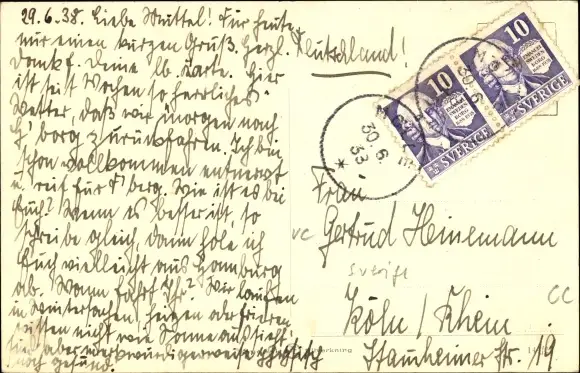 29.6.38. Liebe Muttel! Für heute
nur einen kurzen Gruß. Herzl.
Dank f. Deine lb. Karte. Hier
ist seit Wochen so herrliches
Wetter, daß wir morgen nach
G'borg zurückfahren. Ich bin
schon vollkommen entnervt
u. reif für F'berg. Wie ist es bei
Euch? Wenn es besser ist, so
schreibe gleich, dann hole ich
Euch vielleicht aus Hamburg
ab. Wann fahrt Ihr? Wir laufen
in Wintersachen, heizen
nicht wie Sonne aussieht!
Sind aber merkwürdigerweise physisch
noch gesund.
Deutschland!
10
SVERIGE
10
SVERIGE
30.6.
38
Frau
Gertrud Heinemann
vc
Sverige
cc
Köln / Rhein
Stammheimer Str. 19